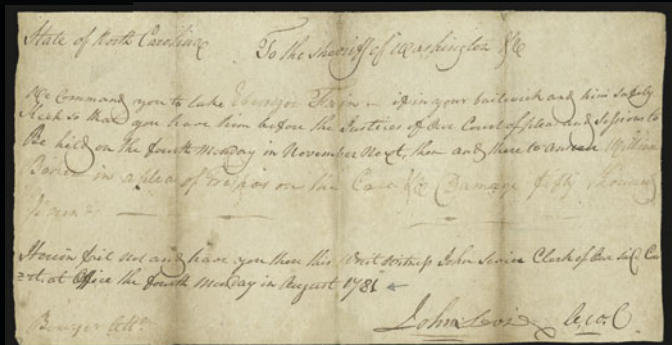 State of North Carolina
To the sheriff of Washington &c
We Command you to take Ebenezer if in your bailiwick and him safely
Keep so that you have him before the Justices of our Court of pleas and sessions to
Be held on the fourth Monday in November Next, then and there to answer William
in a plea of Trespass on the Case &c Damage fifty Thousand
pounds
Herein fail not and have you then this Writ Witness John Sevier Clerk of Our said Cou
=rt at Office the fourth Monday in August 1781
John Sevier